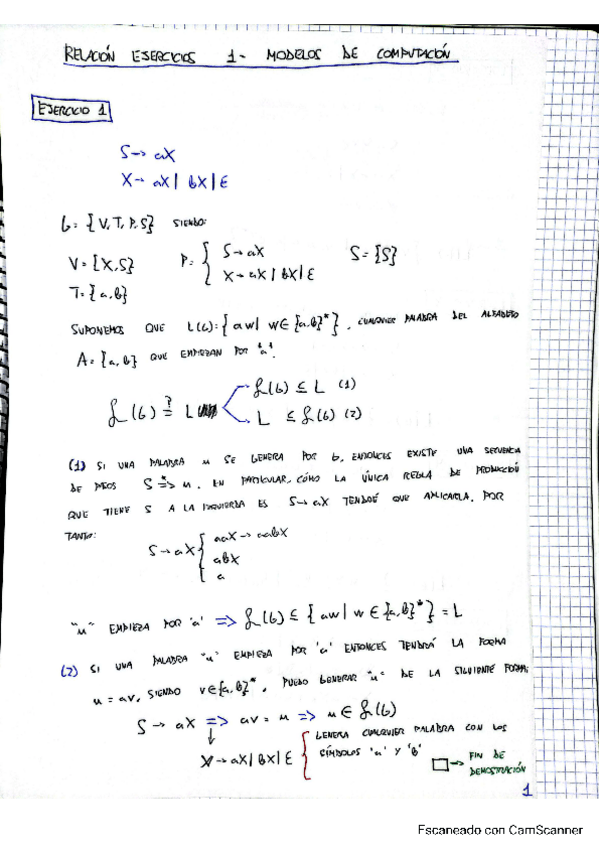 RELACIÓN EJERCICIOS 1- MODELOS DE COMPUTACIÓN
EJERCICIO 1
S → aX
X → aX | bX | ε
G = {V, T, P, S} SIENDO:
V = {X, S}
T = {a, b}
P = { S → aX
X → aX | bX | ε
S = {S}
SUPONEMOS QUE L(G) = { aw | w ∈ {a,b}* }, CUALQUIER PALABRA DEL ALFABETO
A = {a, b} QUE EMPIEZAN POR "a".
L(G) ≟ L
L(G) ⊆ L (1)
L ⊆ L(G) (2)
(1) SI UNA PALABRA u SE GENERA POR G, ENTONCES EXISTE UNA SECUENCIA
DE PASOS S *=> u. EN PARTICULAR, CÓMO LA ÚNICA REGLA DE PRODUCCIÓN
QUE TIENE S A LA IZQUIERDA ES S → aX TENDRÉ QUE APLICARLA. POR
TANTO:
S → aX { aaX → aabX
abX
a
"u" EMPIEZA POR 'a' => L(G) ⊆ { aw | w ∈ {a,b}* } = L
(2) SI UNA PALABRA "u" EMPIEZA POR 'a' ENTONCES TENDRÁ LA FORMA
u = av, SIENDO v ∈ {a,b}*, PUEDO GENERAR "u" DE LA SIGUIENTE FORMA:
S → aX => av = u => u ∈ L(G)
↓
X → aX | bX | ε { GENERA CUALQUIER PALABRA CON LOS
SÍMBOLOS 'a' Y 'b'
□ → FIN DE
DEMOSTRACIÓN
1
Escaneado con CamScanner